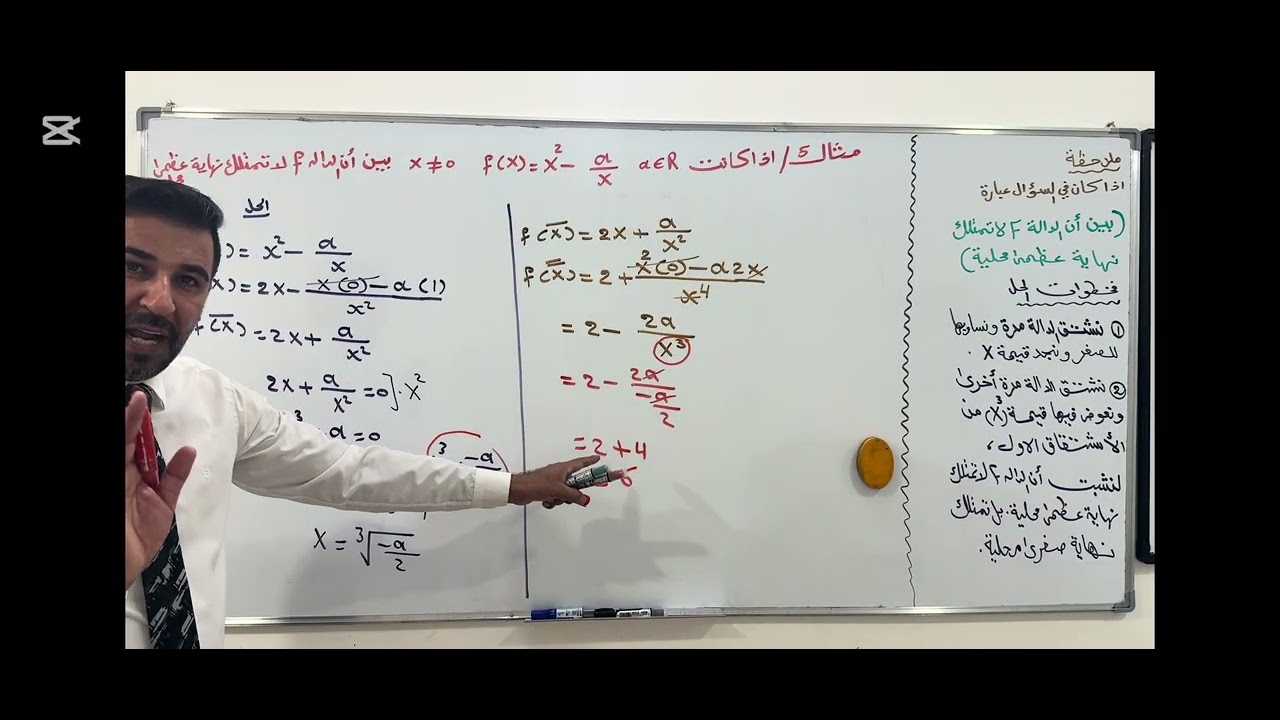 مثال 5/ اذا كانت f(x) = x² - a/x a∈R x≠0 بين أن الدالة f لا تمتلك نهاية عظمى
الحل
) = x² - a/x
x) = 2x - x(0) - a(1) / x²
f(x̄) = 2x + a/x²
2x + a/x² = 0 ] · x²
a = 0
³ -a
x = ∛(-a/2)
f(x̄) = 2x + a/x²
f(x̿) = 2 + x²(0) - a2x / x⁴
= 2 - 2a/x³
= 2 - 2a / (-a/2)
= 2 + 4
6
ملاحظة
اذا كان في السؤال عبارة
(بين أن الدالة F لا تمتلك
نهاية عظمى محلية)
خطوات الحل
① نشتق الدالة مرة ونساويها
للصفر ونجد قيمة x .
② نشتق الدالة مرة أخرى
ونعوض فيها قيمة (x³) من
الأشتقاق الاول ،
لنثبت أن الدالة f لا تمتلك
نهاية عظمى محلية . بل تمتلك
نهاية صغرى محلية .